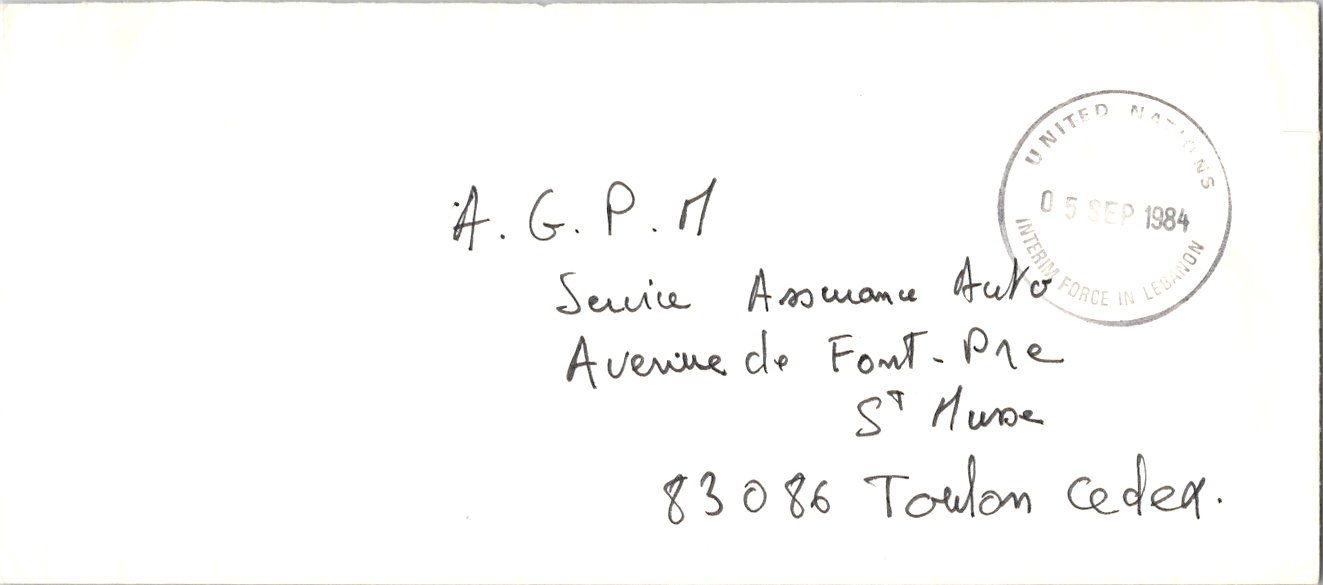 UNITED NATIONS
05 SEP 1984
INTERIM FORCE IN LEBANON
A. G. P. M
Service Assurance Auto
Avenue de Font-Pre
ST Musse
83086 Toulon Cedex.